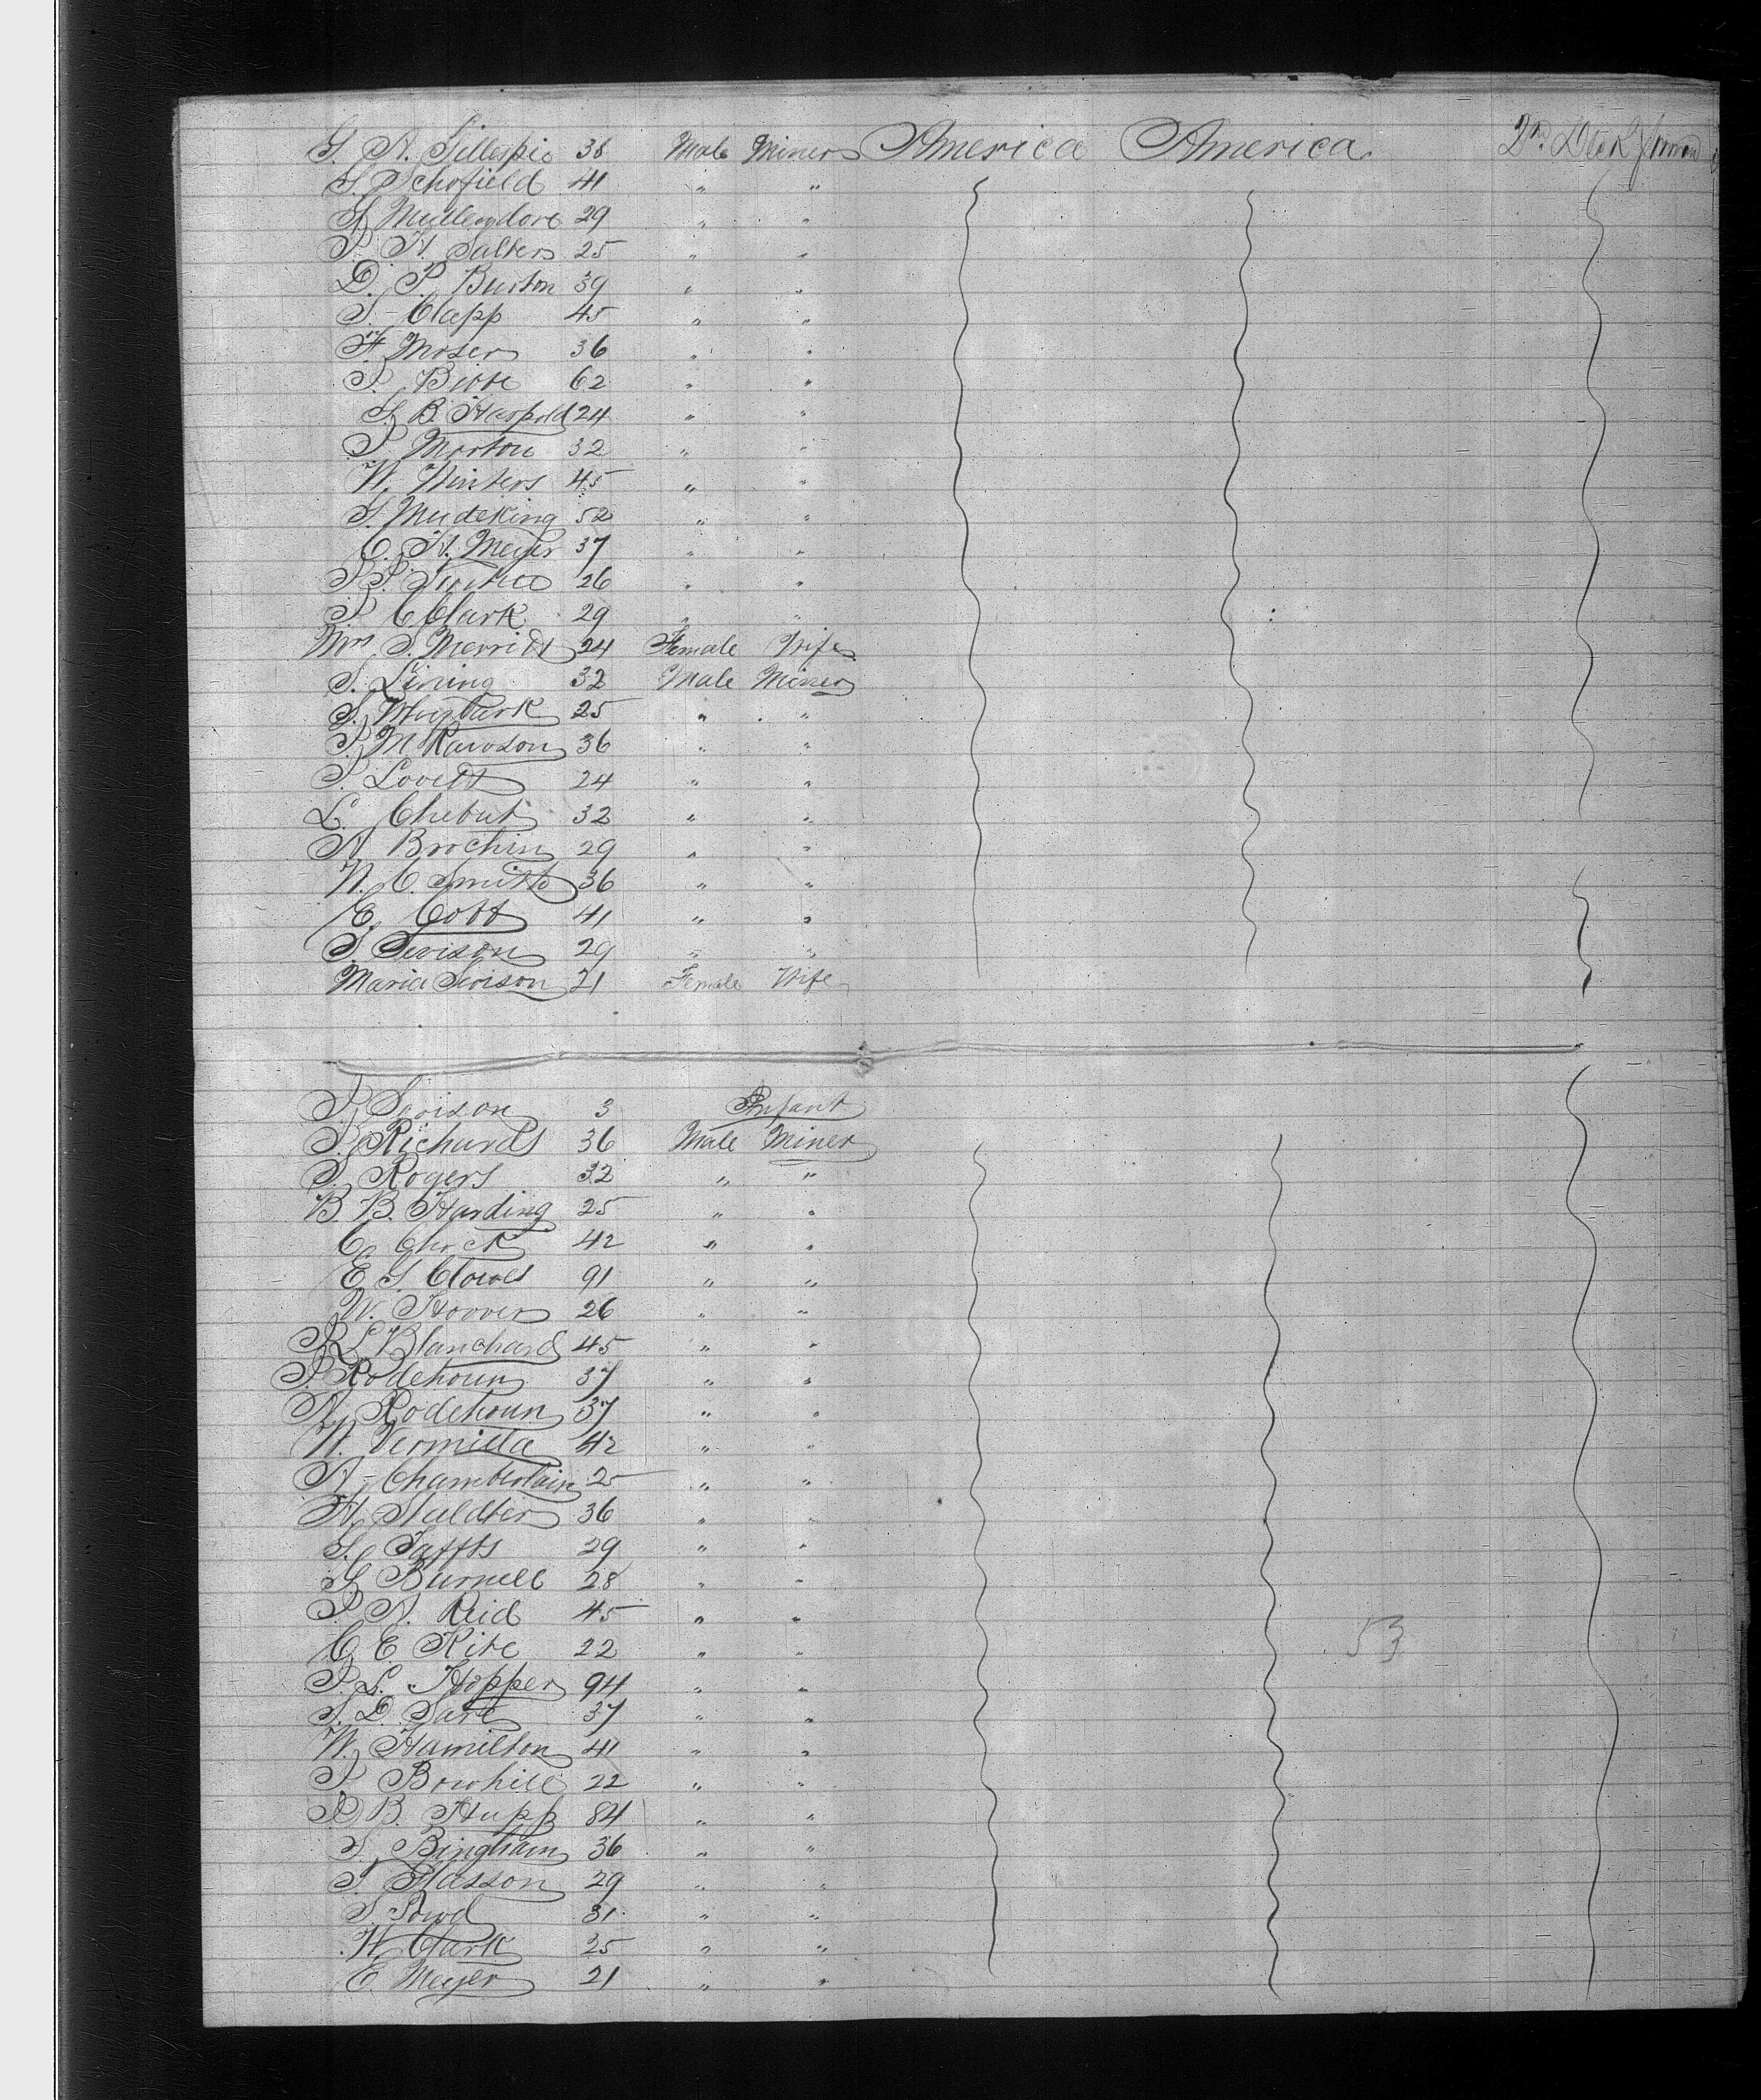 G. A. Gillespie 38 Male Miner America America 2nd Deck forward
S. Schofield 41 " "
G. Mullendore 29 " "
P. H. Salters 25 " "
D. P. Burton 39 " "
S. Clapp 45 " "
F. Moser 36 " "
P. 62 " "
G. B. Harpold 24 " "
P. Morton 32 " "
W. Winters 45 " "
S. Mudeking 52 " "
C. H. Meyer 37 " "
26 " "
P. C. Clark 29 " "
Mrs. S. Merritt 24 Female Wife
S. Lining 32 Male Miner
S. 25 " "
P. M. Rawson 36 " "
P. Lovett 24 " "
L. Chebut 32 " "
A. Brochin 29 " "
N. C. Smith 36 " "
E. Cobb 41 " "
S. Sevison 29 " "
Maria Sevison 21 Female Wife
P. Sevison 3 Infant
P. Richards 36 Male Miner
S. Rogers 32 " "
B. B. Harding 25 " "
C. Check 42 " "
E. S. Clowes 91 " "
W. Hoover 26 " "
R. L. Blanchard 45 " "
P. Rodehoun 37 " "
N. Rodehoun 37 " "
W. Vermilla 42 " "
A. Chamberlain 25 " "
H. Staldter 36 " "
S. Taffts 29 " "
G. Burnell 28 " "
P. A. Reid 45 " "
C. E. Rite 22 " " 53
P. L. Hopper 94 " "
S. D. Sare 37 " "
W. Hamilton 41 " "
P. Bowhill 22 " "
D. B. Hupp 84 " "
S. Bingham 36 " "
T. Hasson 29 " "
S. Dowd 31 " "
W. Clark 25 " "
E. Meyer 21 " "